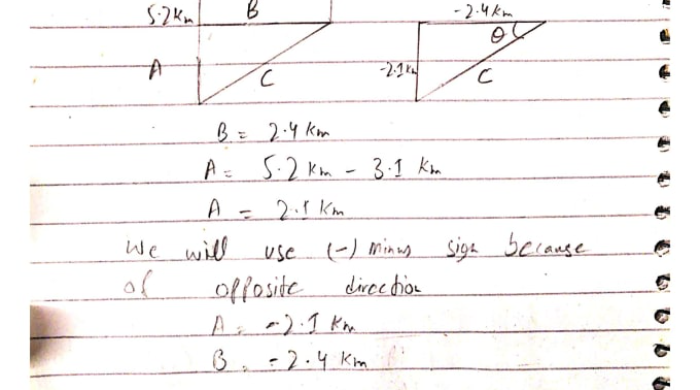 5.2 Km B -2.4 Km
θ
A C -2.1 Km C
B = 2.4 Km
A = 5.2 Km - 3.1 Km
A = 2.1 Km
We will use (-) minus sign because
of opposite direction
A = -2.1 Km
B = -2.4 Km